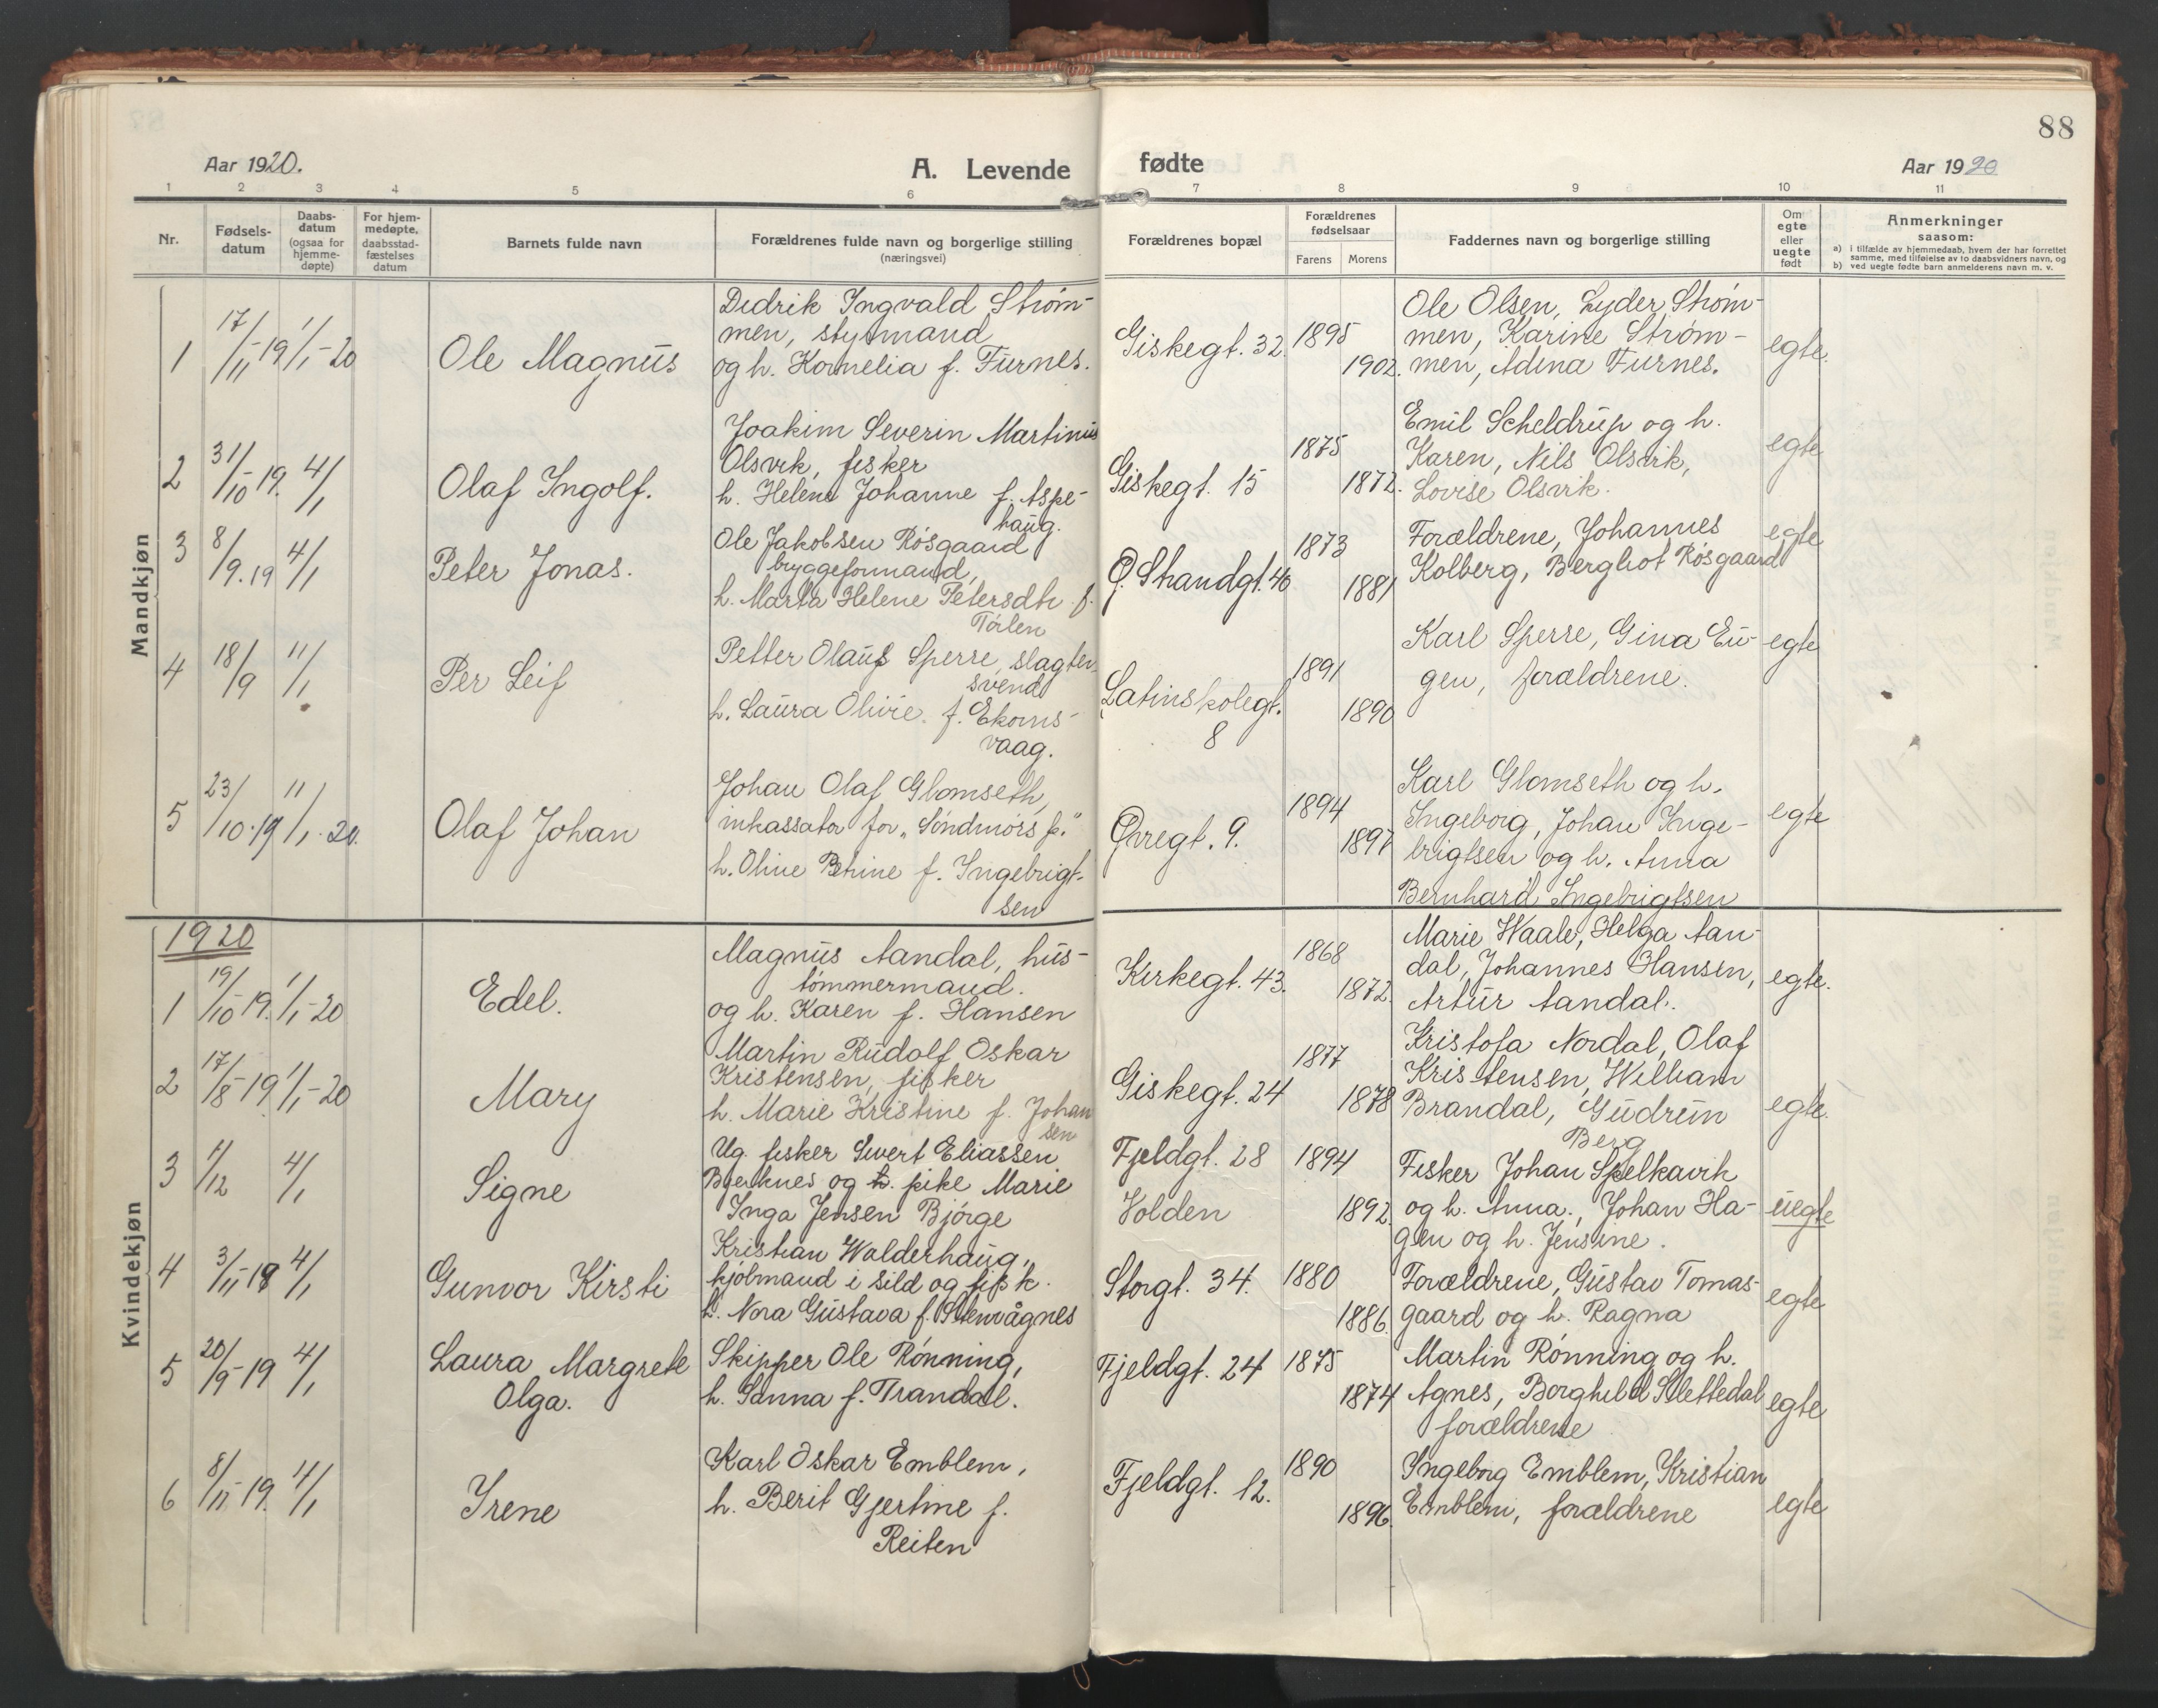 88
Aar 1920.
A. Levende fødte
Aar 1920
1 2 3 4 5 6 7 8 9 10 11
Nr.
Fødsels-
datum
Daabs-
datum
(ogsaa for
hjemme-
døpte)
For hjem-
medøpte,
daabsstad-
fæstelses
datum
Barnets fulde navn
Forældrenes fulde navn og borgerlige stilling
(næringsvei)
Forældrenes bopæl
Forældrenes
fødselsaar
Farens Morens
Faddernes navn og borgerlige stilling
Om
egte
eller
uegte
født
Anmerkninger
saasom:
a) i tilfælde av hjemmedaab, hvem der har forrettet
samme, med tilføielse av to daabsvidners navn, og
b) ved uegte fødte barn anmelderens navn m. v.
Mandkjøn
1 17/11-19 1/1-20
Ole Magnus
Didrik Ingvald Strøm-
men, styrmand
og h. Kornelia f. Furnes.
Giskegt. 32.
1895
1902.
Ole Olsen, Lyder Strøm-
men, Karine Strøm-
men, Adina Furnes.
egte.
2 31/10-19. 4/1
Olaf Ingolf.
Joakim Severin Martinus
Olsvik, fisker
h. Helene Johanne f. Aspe-
haug.
Giskegt. 15
1875
1872.
Emil Scheldrup og h.
Karen, Nils Olsvik,
Lovise Olsvik.
egte
3 8/9.19 4/1
Peter Jonas.
Ole Jakobsen Røsgaard
bryggeformand,
h. Marta Helene Petersdtr. f.
Tørlen
Ø. Strandgt. 46
1873
1881
Forældrene, Johannes
Kolberg, Bergliot Røsgaard
egte
4 18/9 11/1
Per Leif
Petter Olaus Sperre, slagter-
svend
h. Laura Olivie. f. Ekorns-
vaag.
Latinskolegt.
8
1891
1890
Karl Sperre, Gina Eu-
gen, forældrene.
egte
5 23/10.19 11/1.20.
Olaf Johan
Johan Olaf Glomseth,
inkassator for „Søndmørs p."
h. Oline Petrine f. Ingebrigt-
sen
Øvregt. 9.
1894
1897
Karl Glomseth og h.
Ingeborg, Johan Inge-
brigtsen og h. Anna
Bernhard Ingebrigtsen
egte
1920
Kvindekjøn
1 19/10-19. 1/1-20
Edel.
Magnus Aandal, hus-
tømmermand.
og h. Karen f. Hansen
Kirkegt. 43.
1868
1872.
Marie Waale, Helga Aan-
dal, Johannes Hansen,
Artur Aandal.
egte.
2 17/8-19. 1/1-20
Mary
Martin Rudolf Oskar
Kristensen, fisker
h. Marie Kristine f. Johan
sen
Giskegt. 24
1877
1878
Kristofa Nordal, Olaf
Kristensen, William
Brandal, Gudrun
Berg
egte.
3 1/12 4/1
Signe
Ug. fisker Sivert Eliassen
Bjerknes og h. pike Marie
Inga Jensen Bjørge
Fjeldgt. 28
Volden
1894
1892.
Fisker Johan Spelkavik
og h. Anna., Johan Ha-
gen og h. Jensine.
uegte
4 3/11-19 4/1
Gunvor Kirsti
Kristian Walderhaug,
kjøbmand i sild og fisk.
h. Nora Gustava f. Stenvågnes
Storgt. 34.
1880
1886.
Forældrene, Gustav Tomas-
gaard og h. Ragna
egte
5 20/9-19 4/1
Laura Margrete
Olga.
Skipper Ole Rønning,
h. Sanna f. Trandal.
Fjeldgt. 24
1875
1874
Martin Rønning og h.
Agnes, Borghild Slettedal
forældrene
egte
6 8/11-19. 11/1
Irene
Karl Oskar Emblem,
h. Berit Gjertine f.
Reiten
Fjeldgt. 12.
1890
1896.
Ingeborg Emblem, Kristian
Emblem, forældrene
egte